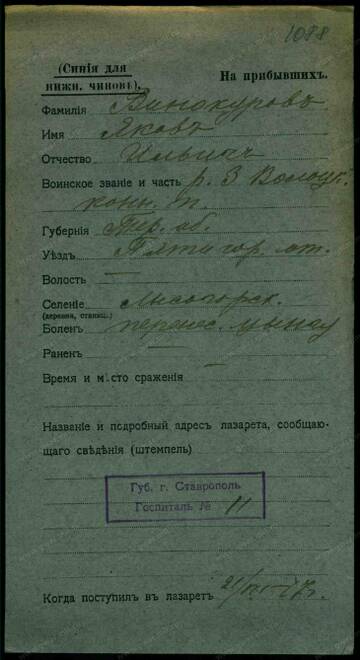 1088
(Синія для нижн. чиновъ).
На прибывшихъ.
Фамилія Винокуровъ
Имя Яковъ
Отчество Ильичъ
Воинское званіе и часть р. 3
конн. п.
Губернія Тер. об.
Уѣздъ Пятигор. от.
Волость —
Селеніе Лысогорск.
(деревня, станиц.)
Боленъ перенес.
Раненъ —
Время и мѣсто сраженія —
Названіе и подробный адресъ лазарета, сообщаю-
щаго свѣдѣнія (штемпель)
Губ. г. Ставрополь
Госпиталь № 11
Когда поступилъ въ лазаретъ